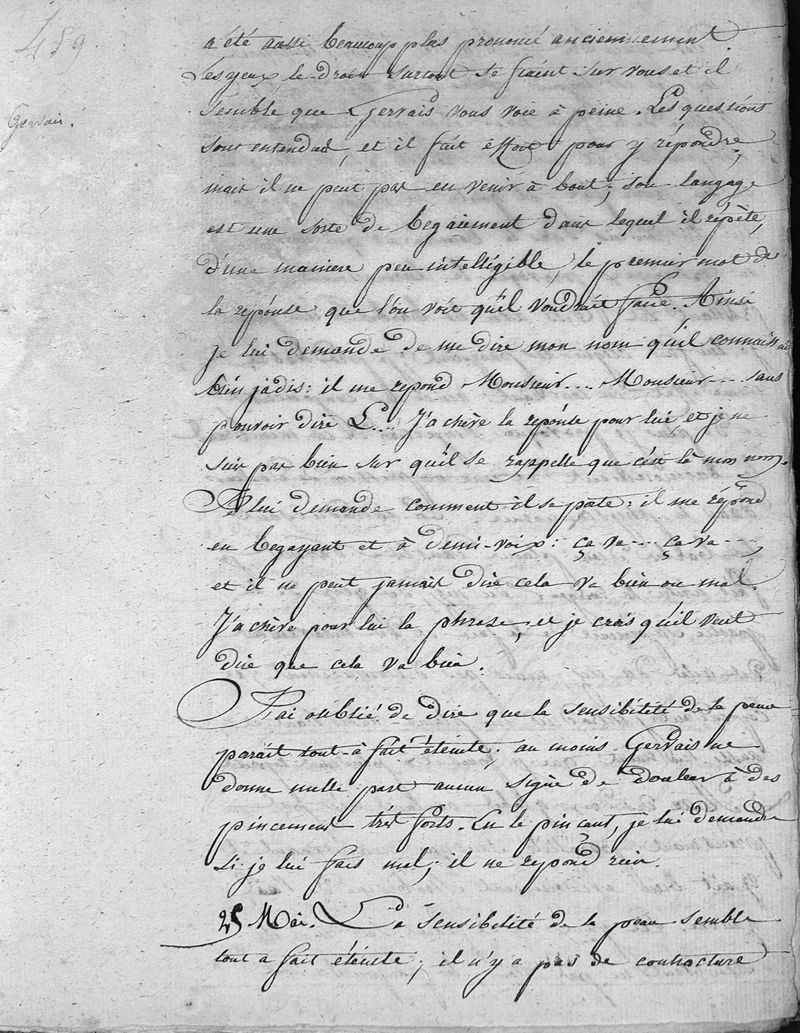 459
Gervais.
a été aussi beaucoup plus prononcé anciennement
Les yeux le droit surtout se fixent sur vous et il
semble que Gervais vous voie à peine. Les questions
sont entendues, et il fait effort pour y répondre,
mais il ne peut pas en venir à bout; son langage
est une sorte de begaiement dans lequel il répète,
d'une maniere peu intelligible, le premier mot de
la réponse que l'on voit qu'il voudrait faire. Ainsi
je lui demande de me dire mon nom qu'il connaissait
bien jadis: il me repond Monsieur.... Monsieur.... sans
pouvoir dire L.... J'achève la reponse pour lui, et je ne
suis pas bien sur qu'il se rappelle que c'est là mon nom.
Je lui demande comment il se porte: il me répond
en begayant et à demi-voix: ça va.... ça va....,
et il ne peut jamais dire cela va bien ou mal.
J'achève pour lui la phrase, et je crois qu'il veut
dire que cela va bien.
J'ai oublié de dire que la sensibilité de la peau
parait tout-à fait éteinte; au moins Gervais ne
donne nulle part aucun signe de douleur à des
pincemens très forts. En le pinçant, je lui demande
si je lui fais mal; il ne repond rien.
25 Mai. La sensibilité de la peau semble
tout a fait éteinte; il n'y a pas de contracture